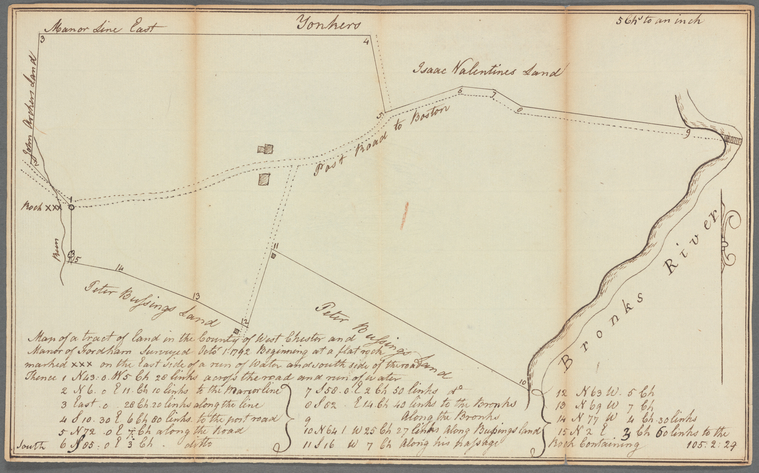 Manor Line East
Yonkers
5 Chs to an inch
3
4
John Archers Land
Isaac Valentines Land
5
6
7
8
9
Post Road to Boston
Rock xxx
1
Run
15
14
13
12
11
10
Peter Bussings Land
Peter Bussings Land
Bronks River
Map of a tract of land in the County of West Chester and
Manor of Fordham Surveyed Octobr 1 1792 Beginning at a flat rock
marked xxx on the East Side of a run of Water and south side of the road
Thence 1 N 43.0 W 5 Ch 28 links across the road and run of water
2 N 6.0 E 11 Ch 10 links to the Manor line
3 East .0 28 Ch 20 links along the line
4 S 10.30 E 6 Ch 80 links to the post road
5 N 72.0 E 7 Ch along the Road
South 6 S 85.0 E 3 Ch ditto
7 S 58.0 E 2 Ch 50 links do
8 S 82. E 14 Ch 43 links to the Bronks
9 Along the Bronks
10 N 64 1 W 25 Ch 27 links along Bussings land
11 S 16 W 7 Ch Along his passage
12 N 63 W 5 Ch
13 N 69 W 7 Ch
14 N 77 W 4 Ch 30 links
15 N 2 E 3 Ch 60 links to the
Rock Containing 105.2.24